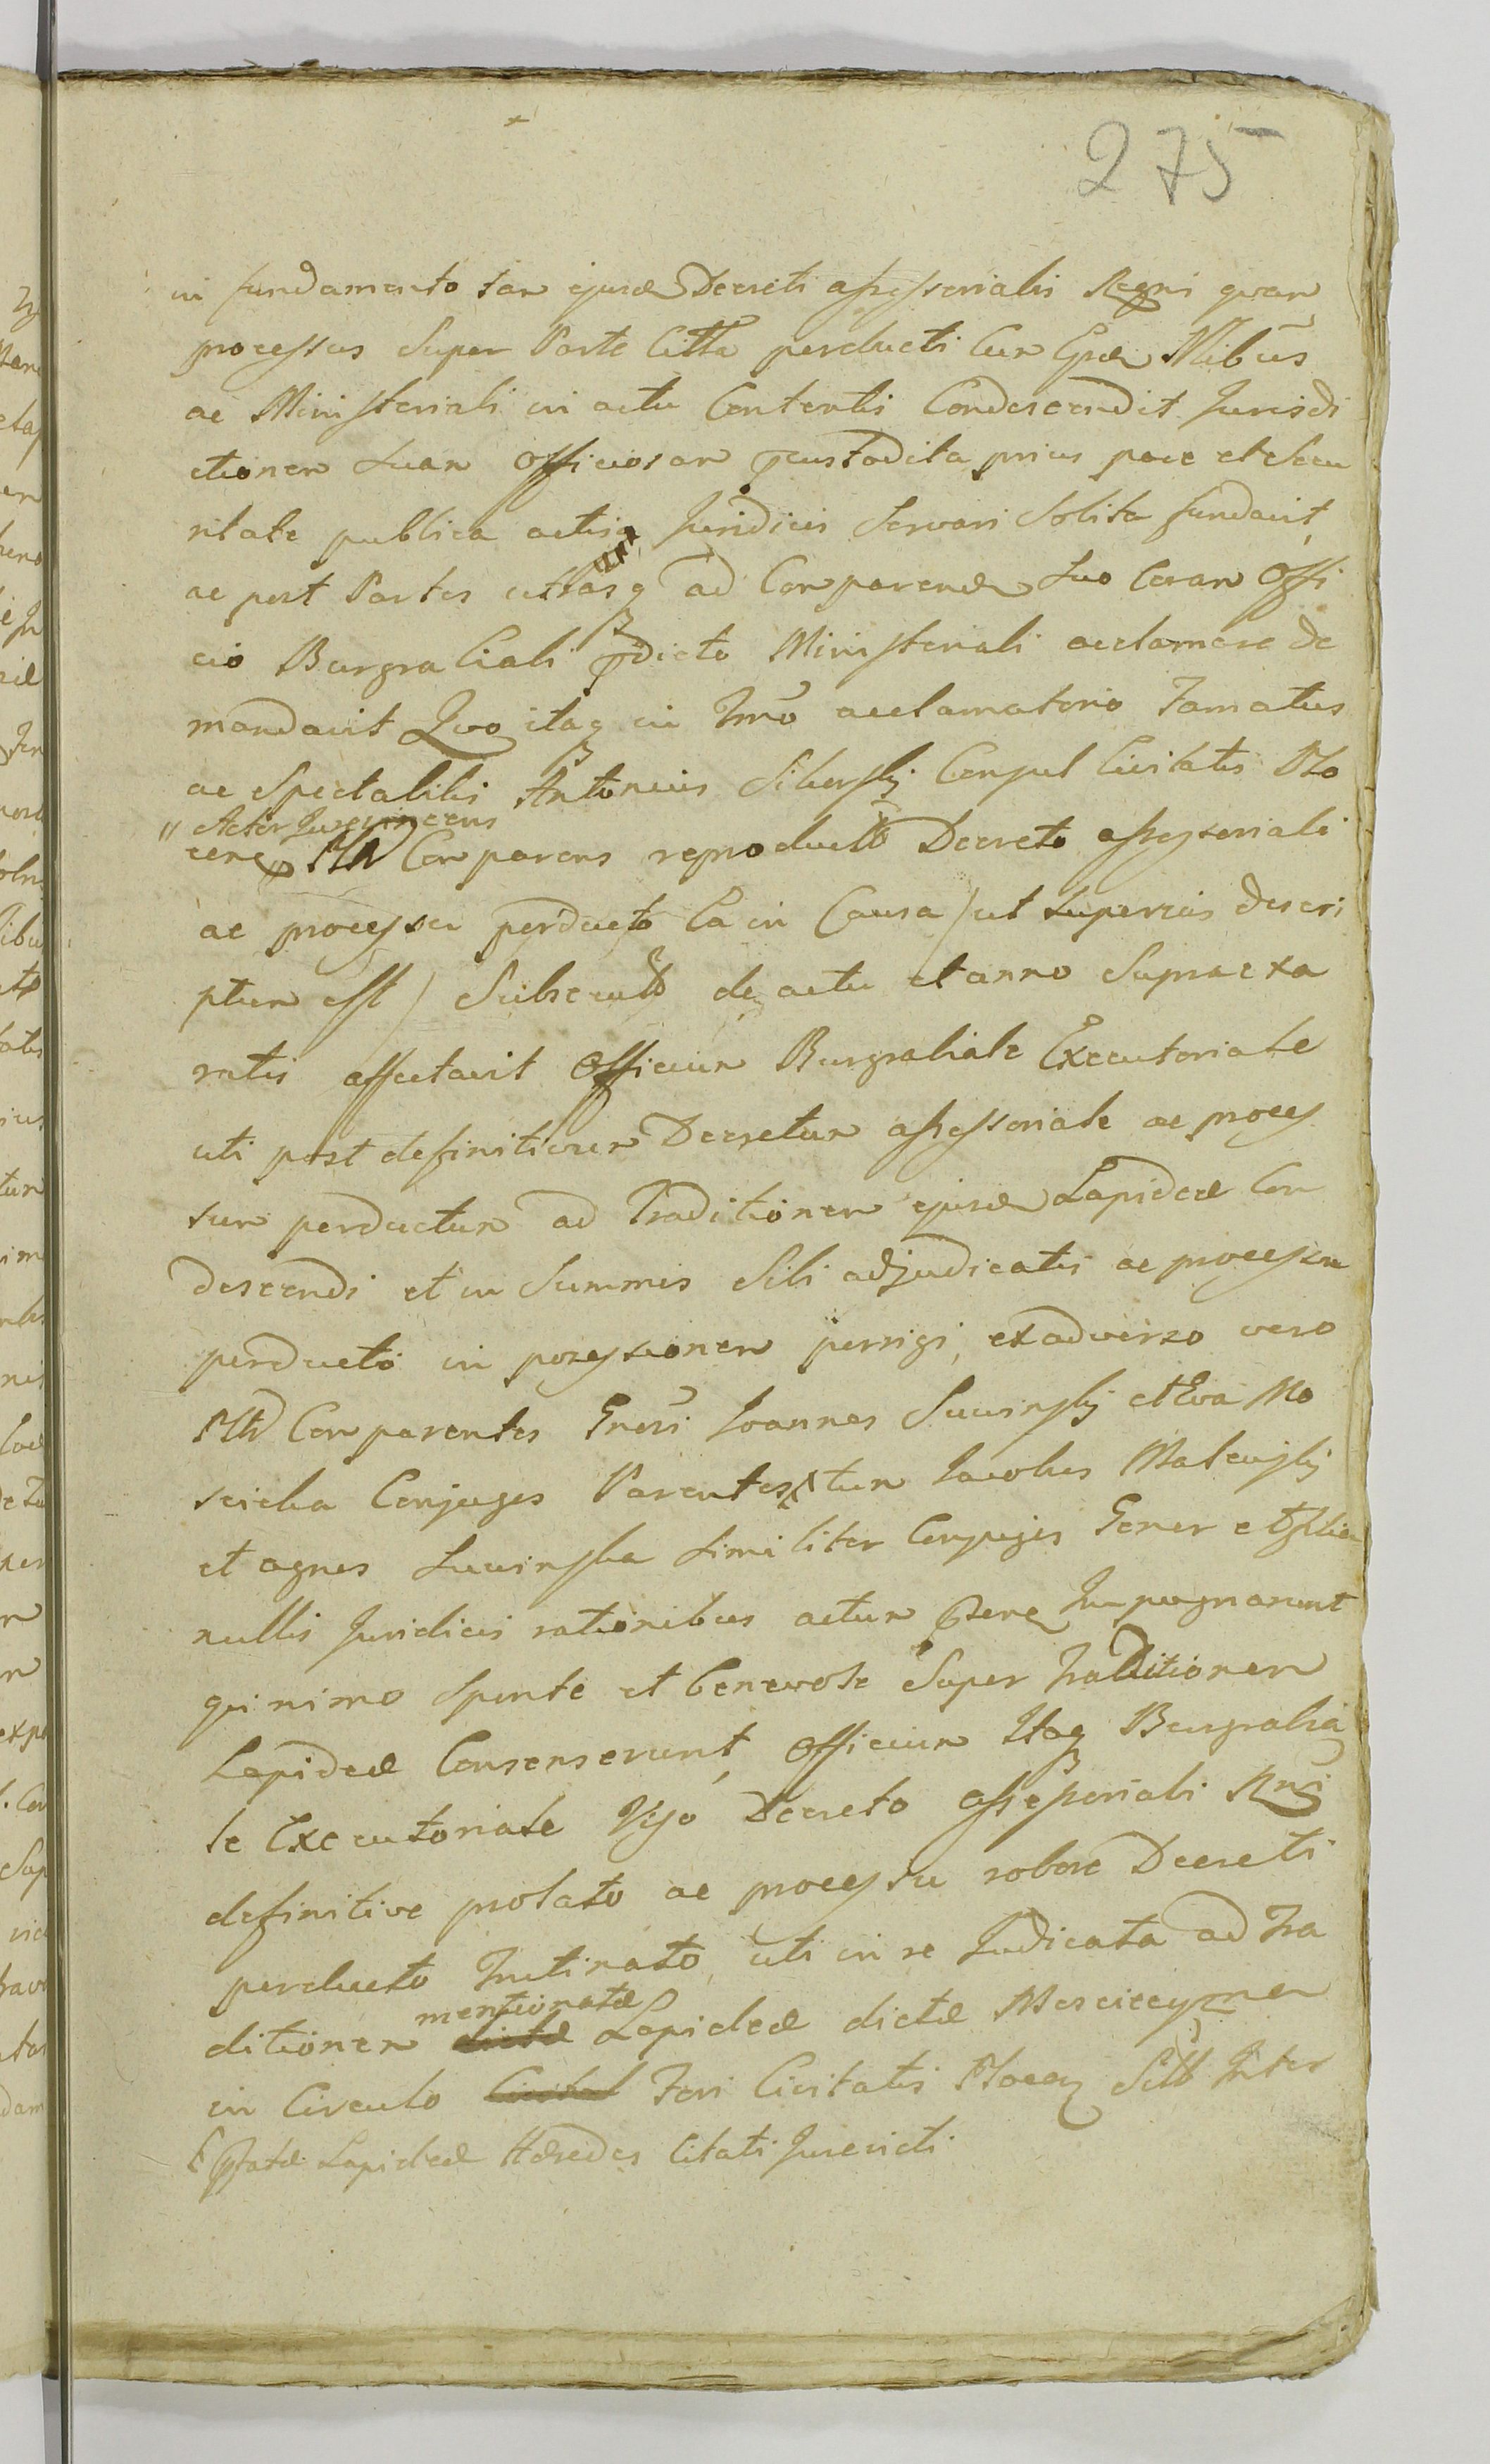 275
in fundamento tam ejusd Decreti assessorialis Regni qvam
processus Super Parte Citta perducti Cum Eisd Nlibus
ac Ministeriali in actu Contentis Condescendit Jurisdi
ctionem Suam Officiosam pcustodita prius pace et Secu
ritate publica actisq Juridicis Servari Solita fundavit
ac post Partes utrasq ad Comparend Suo Coram Offi
cio Burgrabiali pdicto Ministeriali acclamare de
mandavit Qvo itaq in Tmo acclamatorio Famatus
ac Spectabilis Antonius Consul Civitatis Plo
" Actor Jurevincens
cens Comparens reproducto Decreto assessoriali
ac processu perducto Ea in Causa / ut Superius descri
ptum est / Subsecuto de actu et anno Supraexa
ratis affectavit Officium Burgrabiale Executoriale
uti post definitivum Decretum assessoriale ac proces
sum perductum ad Traditionem ejusd Lapideæ Con
descendi et in Summis Sibi adjudicatis ac processu
perducto in possessionem porrigi, exadverso vero
Comparentes Gnosi Joannes Suwinsky et Eva Mo
scicka Conjuges Parentes tum Jacobus Malewsky
et agnes Suwinska Similiter Conjuges Gener et filia
nullis Juridicis rationibus actum Impugnarunt
qvinimo Sponte et benevole Super Traditionem
Lapideæ Consenserunt, Officium Itaq Burgrabia
le Executoriale Viso Decreto assessoriali Rni
definitive prolato ac processu robore Decreti
perducto Intimato, uti in re Judicata ad Tra
mentionatæ
ditionem dictæ Lapideæ dictæ
in Circulo Civitat Fori Civitatis Plocen Sitæ Inter
pfatæ Lapideæ Hæredes Citati Jurevicti